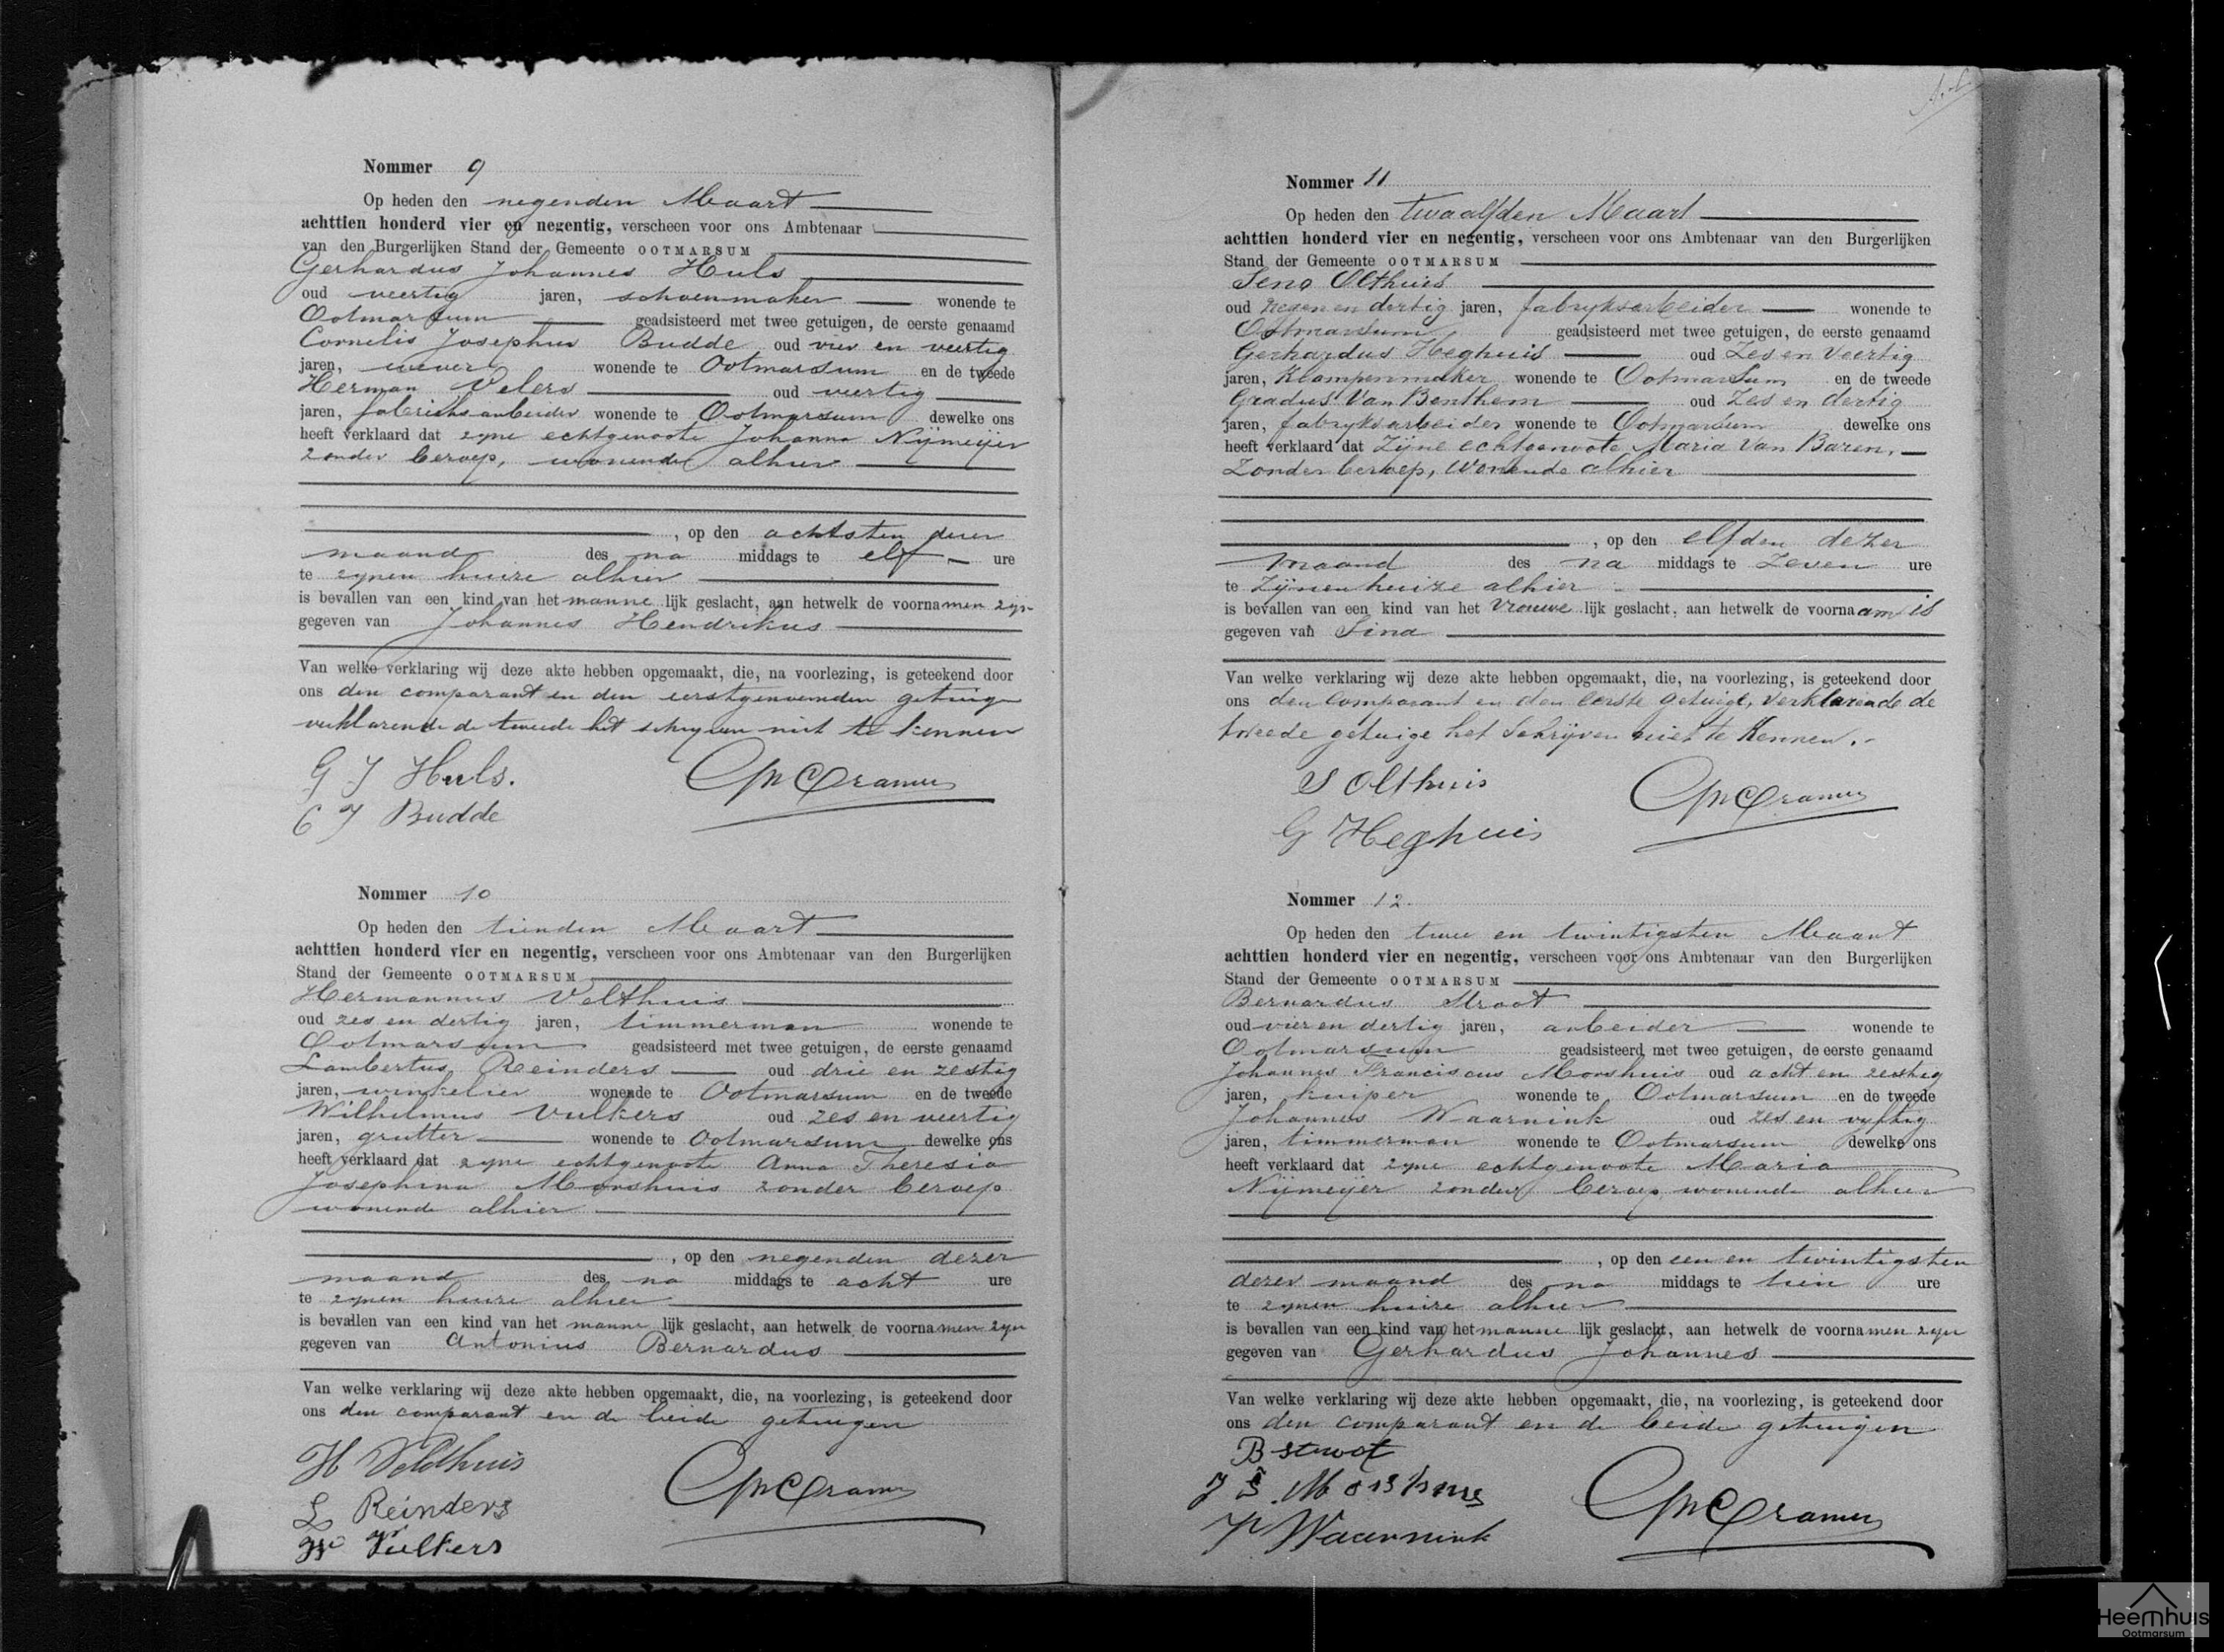 Nommer 9
Op heden den negenden Maart
achttien honderd vier en negentig, verscheen voor ons Ambtenaar
van den Burgerlijken Stand der Gemeente OOTMARSUM
Gerhardus Johannes Huls
oud veertig jaren, schoenmaker wonende te
Ootmarsum geadsisteerd met twee getuigen, de eerste genaamd
Cornelis Josephus Budde oud vier en veertig
jaren, wever wonende te Ootmarsum en de tweede
Herman Velers oud veertig
jaren, fabrieksarbeider wonende te Ootmarsum dewelke ons
heeft verklaard dat zyne echtgenoote Johanna Nijmeijer
zonder beroep, wonende alhier
, op den achtsten dezer
maand des na middags te elf ure
te zynen huize alhier
is bevallen van een kind van het manne lijk geslacht, aan hetwelk de voornamen zyn
gegeven van Johannes Hendrikus
Van welke verklaring wij deze akte hebben opgemaakt, die, na voorlezing, is geteekend door
ons den comparant en den eerstgenoemden getuige
verklarende de tweede het schryven niet te kennen
G J Huls.
C J Budde
Cramer
Nommer 10
Op heden den tienden Maart
achttien honderd vier en negentig, verscheen voor ons Ambtenaar van den Burgerlijken
Stand der Gemeente OOTMARSUM
Hermannus Velthuis
oud zes en dertig jaren, timmerman wonende te
Ootmarsum geadsisteerd met twee getuigen, de eerste genaamd
Lambertus Reinders oud drie en zestig
jaren, winkelier wonende te Ootmarsum en de tweede
Wilhelmus Vulkers oud zes en veertig
jaren, grutter wonende te Ootmarsum dewelke ons
heeft verklaard dat zyne echtgenoote Anna Theresia
Josephina Morshuis zonder beroep
wonende alhier
, op den negenden dezer
maand des na middags te acht ure
te zynen huize alhier
is bevallen van een kind van het manne lijk geslacht, aan hetwelk de voornamen zyn
gegeven van Antonius Bernardus
Van welke verklaring wij deze akte hebben opgemaakt, die, na voorlezing, is geteekend door
ons den comparant en de beide getuigen
H Veldhuis
L Reinders
W Vulkers
Cramer
Nommer 11
Op heden den twaalfden Maart
achttien honderd vier en negentig, verscheen voor ons Ambtenaar van den Burgerlijken
Stand der Gemeente OOTMARSUM
Seno Olthuis
oud negen en dertig jaren, fabryksarbeider wonende te
Ootmarsum geadsisteerd met twee getuigen, de eerste genaamd
Gerhardus Heghuis oud Zes en Veertig
jaren, Klompenmaker wonende te Ootmarsum en de tweede
Gradus Van Benthem oud Zes en dertig
jaren, fabryksarbeider wonende te Ootmarsum dewelke ons
heeft verklaard dat Zijne echtgenoote Maria Van Baren,
Zonder beroep, Wonende alhier
, op den elfden dezer
maand des na middags te Zeven ure
te Zijnen huize alhier
is bevallen van een kind van het Vrouwe lijk geslacht, aan hetwelk de voornaam is
gegeven van Sina
Van welke verklaring wij deze akte hebben opgemaakt, die, na voorlezing, is geteekend door
ons den Comparant en den eerste getuige, Verklarende de
tweede getuige het Schrijven niet te Kennen.
S Olthuis
G Heghuis
Cramer
Nommer 12.
Op heden den twee en twintigsten Maart
achttien honderd vier en negentig, verscheen voor ons Ambtenaar van den Burgerlijken
Stand der Gemeente OOTMARSUM
Bernardus Stroot
oud vier en dertig jaren, arbeider wonende te
Ootmarsum geadsisteerd met twee getuigen, de eerste genaamd
Johannes Franciscus Morshuis oud acht en zestig
jaren, kuiper wonende te Ootmarsum en de tweede
Johannes Waarnink oud zes en vyftig
jaren, timmerman wonende te Ootmarsum dewelke ons
heeft verklaard dat zyne echtgenoote Maria
Nijmeijer zonder beroep wonende alhier
, op den een en twintigsten
dezer maand des na middags te tien ure
te zynen huize alhier
is bevallen van een kind van het manne lijk geslacht, aan hetwelk de voornamen zyn
gegeven van Gerhardus Johannes
Van welke verklaring wij deze akte hebben opgemaakt, die, na voorlezing, is geteekend door
ons den comparant en de beide getuigen
B stroot
Morshuis
Waarnink
Cramer
Heemhuis
Ootmarsum